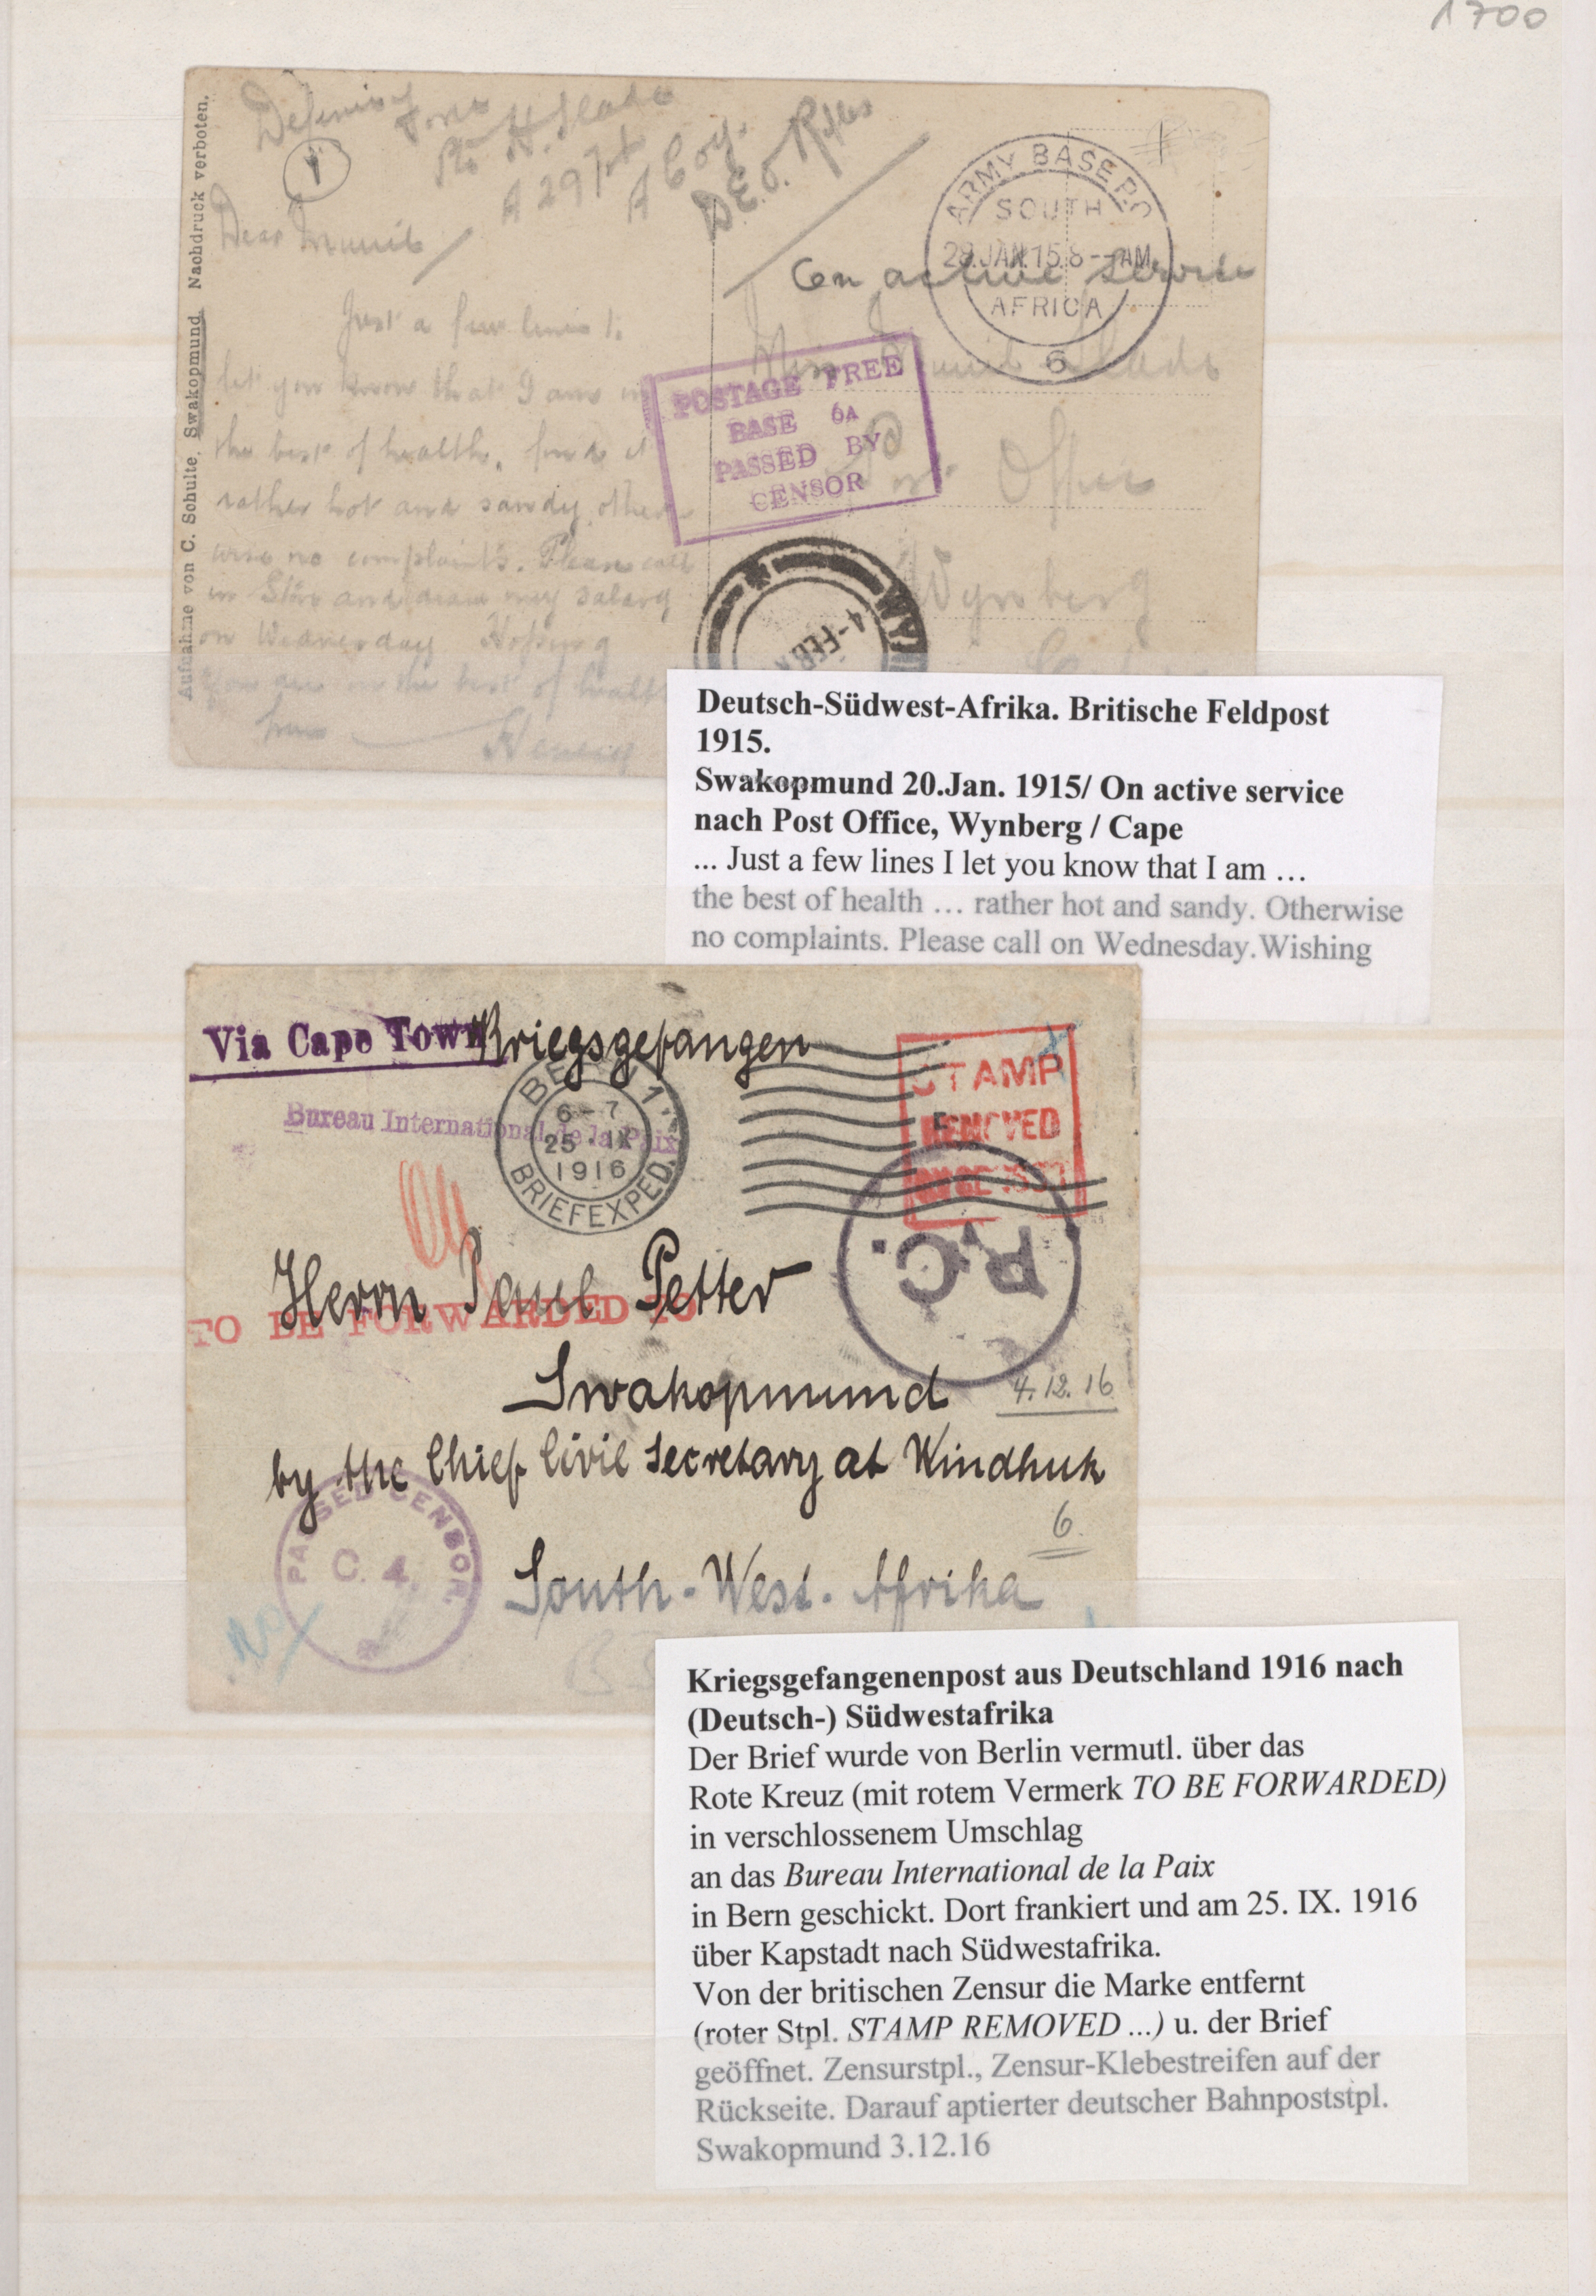 1700
Aufnahme von C. Schulte, Swakopmund. Nachdruck verboten.
Defence Force
Pte H. Slade
A Coy.
D.E.O. Rifles
1
Dear
Just a few lines t.
let you know that I am in
the best of health, find it
rather hot and sandy other
wise no complaints. Please call
in Store and draw my salary
on Wednesday Hoping
you are in the best of health
from
ARMY BASE P.O
SOUTH
28.JAN.15.8--AM
AFRICA
6
On active service
Miss Slade
Post Office
Wynberg
POSTAGE FREE
BASE 6A
PASSED BY
CENSOR
WYN
4-FEB
Deutsch-Südwest-Afrika. Britische Feldpost
1915.
Swakopmund 20.Jan. 1915/ On active service
nach Post Office, Wynberg / Cape
... Just a few lines I let you know that I am …
the best of health … rather hot and sandy. Otherwise
no complaints. Please call on Wednesday.Wishing
Via Cape Town
Kriegsgefangen
Bureau International de la Paix
BERN 1
6-7
25·IX
1916
BRIEFEXPED.
STAMP
REMOVED
P.C.
Herrn Paul Petter
TO BE FORWARDED TO
Swakopmund
4.12.16
by the Chief Civil Secretary at Windhuk
PASSED CENSOR.
C. 4.
6
South-West-Afrika
Kriegsgefangenenpost aus Deutschland 1916 nach
(Deutsch-) Südwestafrika
Der Brief wurde von Berlin vermutl. über das
Rote Kreuz (mit rotem Vermerk TO BE FORWARDED)
in verschlossenem Umschlag
an das Bureau International de la Paix
in Bern geschickt. Dort frankiert und am 25. IX. 1916
über Kapstadt nach Südwestafrika.
Von der britischen Zensur die Marke entfernt
(roter Stpl. STAMP REMOVED ...) u. der Brief
geöffnet. Zensurstpl., Zensur-Klebestreifen auf der
Rückseite. Darauf aptierter deutscher Bahnpoststpl.
Swakopmund 3.12.16